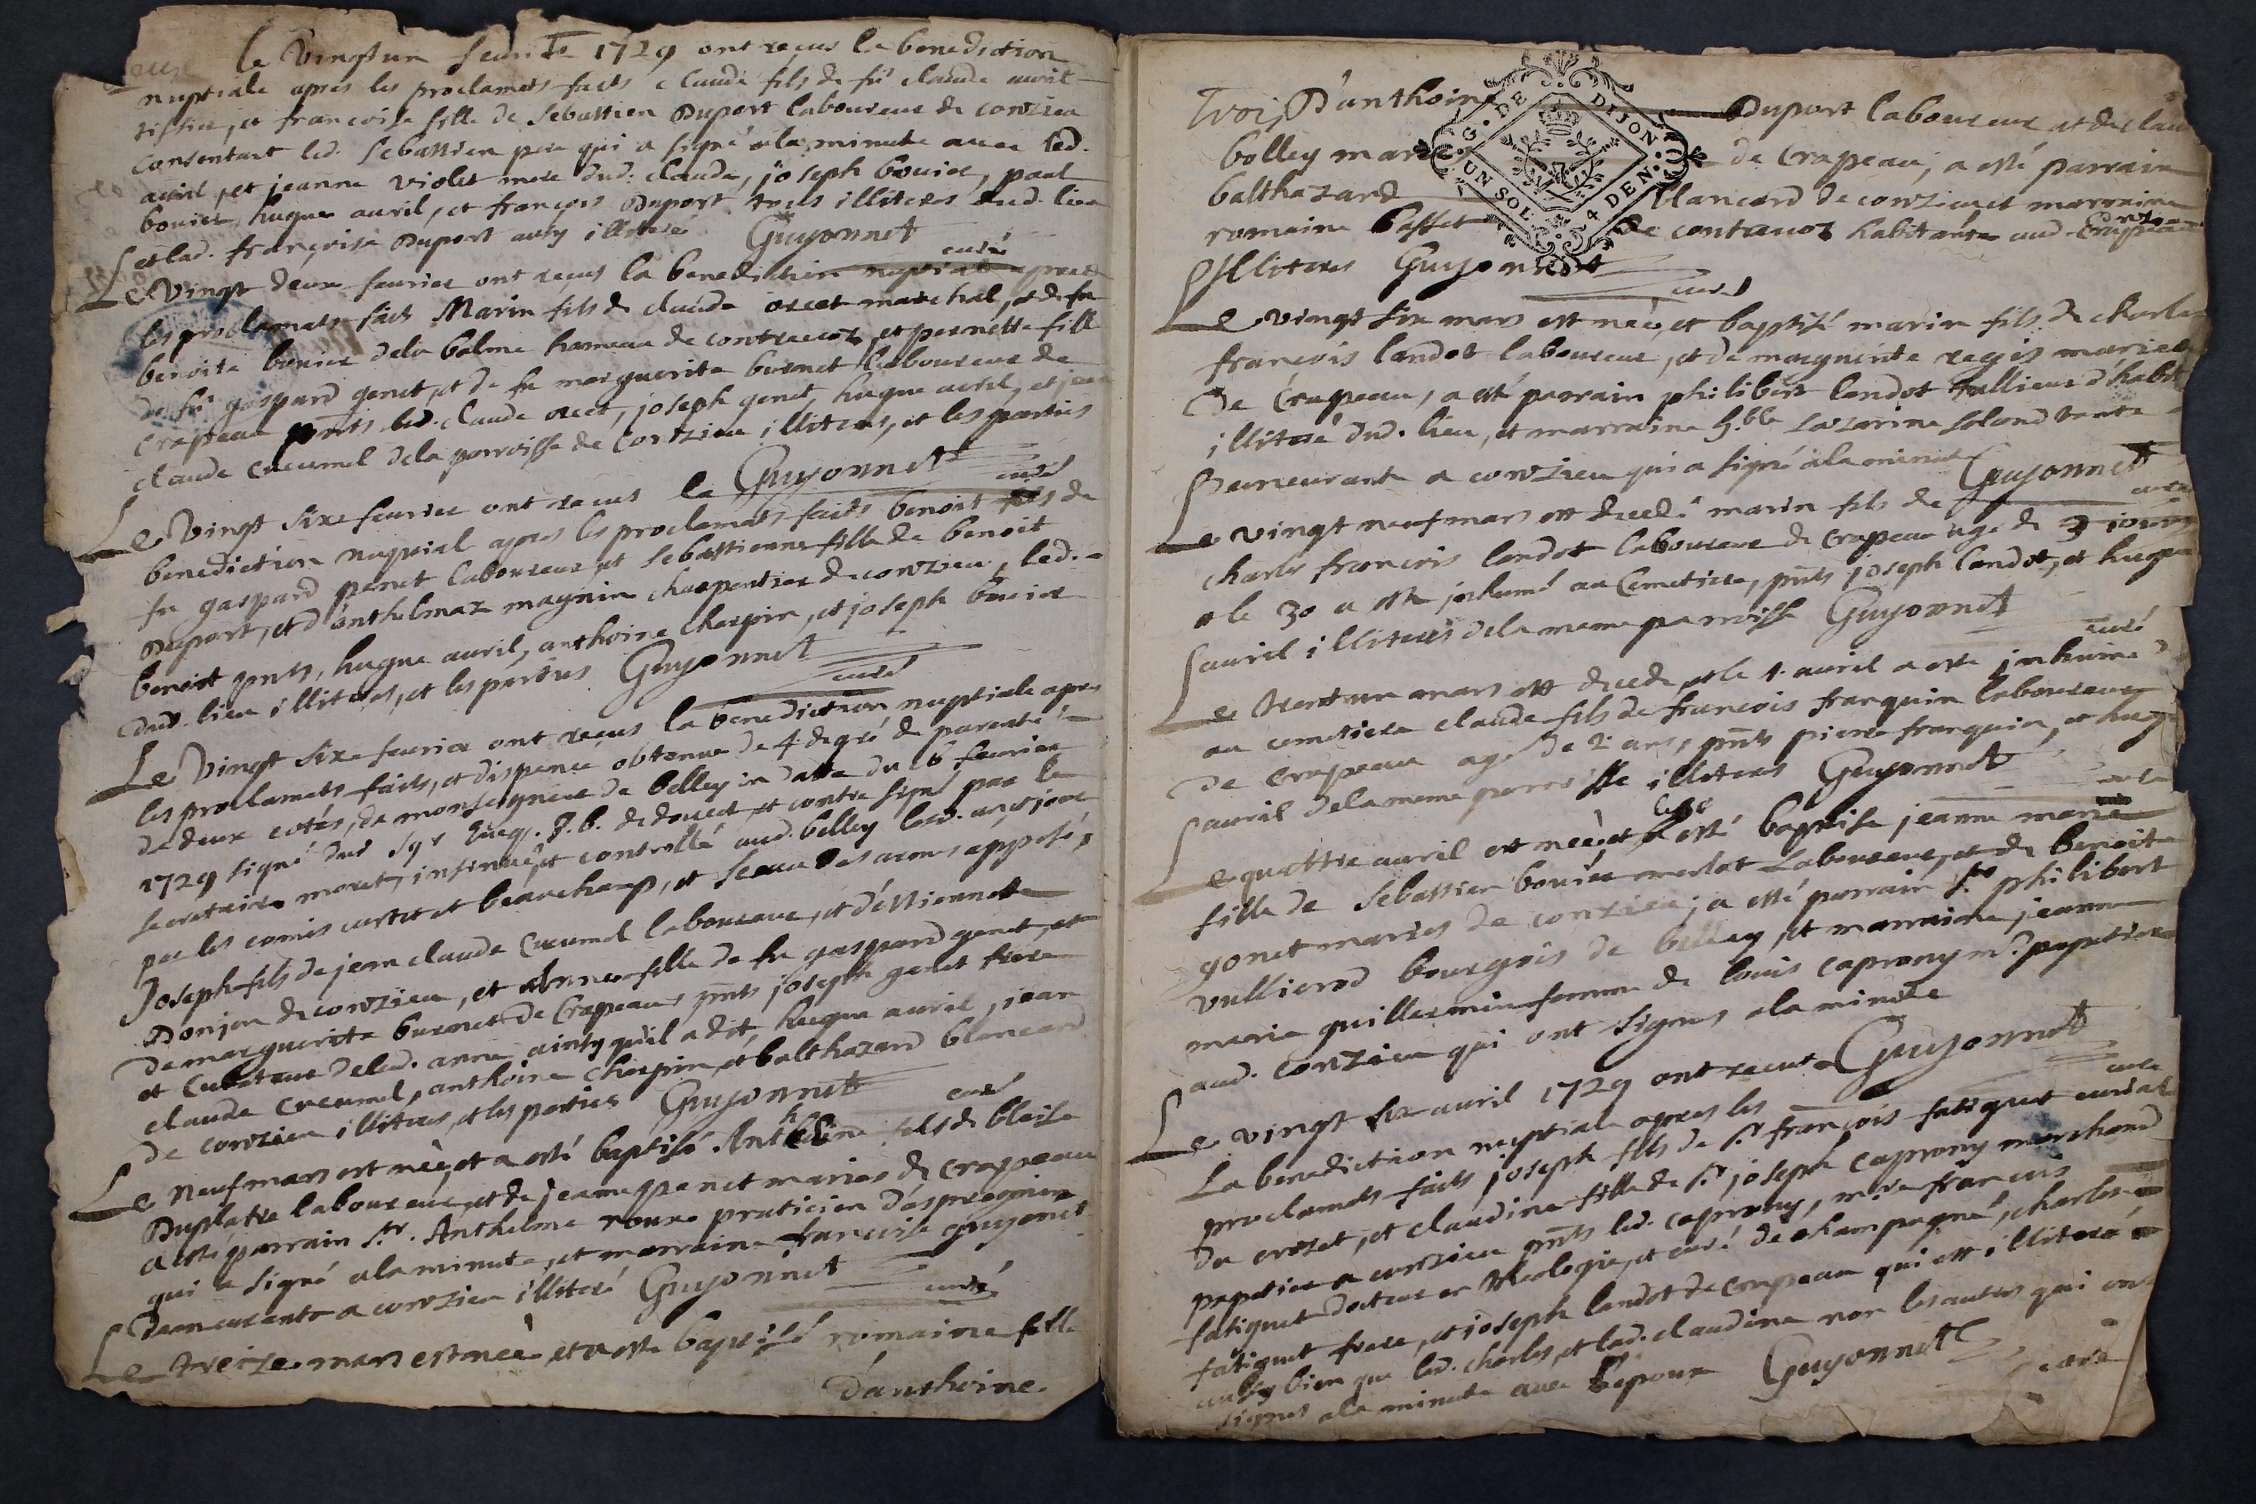 le Vingt un feurier 1729 ont reçus la benediction
nuptiale apres les proclamats faits claude fils de fû claude auril
tissier, et francoise fille de Sebastien Duport laboureur de conzieu
consentant led. Sebastien pere qui a signé a la minute auec led.
auril, et jeanne violet mere dud. claude, joseph bouier, paul
bouier, hugue auril, et françois Duport tous illiteres dud. lieu
et lad. françoise Duport aussy illiteré Guyonnet
curé
Le Vingt deux feurier ont reçus la benediction nuptial apres
les proclamats faits Marin fils de claude recet marechal, et de fû
benoite bouier dela balme hameau de contreuoz, et pernette fille
de fû gaspard genet, et de fu marguerite burnet laboureur de
crapeau pnts led. claude recet, joseph genet, hugue auril, et jean
claude cucumel dela parroisse de Conzieu illiteres, et les parties
Guyonnet curé
Le Vingt sixe feurier ont reçus la
benediction nuptial apres les proclamats faits benoit fils de
fu gaspard genet laboureur, et Sebastienne fille de benoit
Duport, et d'anthelmaz magnin charpentier de conzieu, led.
benoit pnts, hugue auril, anthoine cherpin, et joseph bouier
dud. lieu illiteres, et les parties Guyonnet
curé
Le Vingt sixe feurier ont reçus la benediction nuptiale apres
les proclamats faits, et dispence obtenue de 4 degré de parenté
de deux cotés, de monseigneur de belley in datte du 16 feurier
1729 signé dud Sgr Eueq. J. b. de doucet, et contre signé par le
secretaire moret, insinué et controllé aud. belley led.
par les comis curtet et beauchamp, et Sceau des armes apposé,
Joseph fils de jean claude Cucumel laboureur, et d'éstiennette
Donjon de conzieu, et Anne fille de fu gaspard genet, et
de marguerite burnet de Crapeau, pnts joseph genet frere
et Curateur de lad. anne ainsy qu'il a dit, hugue auril, jean
claude cucumel, anthoine cherpin, et balthazard blancard
de conzieu illiteres, et les parties Guyonnet
curé
Le Neuf mars est neè, et a esté baptisé Anthelme fils de blaise
Duplatre laboureur, et de jeanne genet maries de crapeau
a esté parrain Sr. Anthelme roux praticien d'aspregnieu
qui a signé a la minute, et marraine françoise guyonet
demeurante a conzieu illiteré Guyonnet
curé
Le treize mars est neè et a esté baptisé romaine fille
d'anthoine
Trois D'anthoine Duport laboureur et de clau
bolley maries de Crapeau, a esté parrain
balthazard blancard de conzieu et marraine
romaine basset de contreuoz habitante aud. conzieu
Illiteres Guyonnet
curé
G. DE DIJON
UN SOL 4 DEN.
Le vingt six mars est neè, et baptisé marin fils de charle
francois landot laboureur, et de marguerite regis maries
de Crapeau, a esté parrain philibert landot tallieur d'habit
illiteré dud. lieu, et marraine hble Lazarine
Demeurante a conzieu qui a signé a la minute Guyonnet
curé
Le vingt neuf mars est decedé marin fils de
charle francois landot laboureur de crapeau agé de 3 jours
et le 30 a esté inhumé au Cemetiere, pnts joseph landot, et hugue
auril illiteres de la meme parroisse Guyonnet
curé
Le trent un mars est decede, et le 1. auril a esté inhumé
au cemetiere claude fils de francois franquin laboureur
de crapeau agé de 2 ans, pnts pierre franquin, et hugue
auril de la meme parroisse illiteres Guyonnet
curé
Le quattre auril est neè, et a esté baptisé jeanne marie
fille de Sebastien bouier merlot Laboureur, et de benoite
gonet maries de conzieu; a esté parrain Sr philibert
vullierod bourgois de belley, et marraine jeanne
marie guillermin femme de louis caprony md. papetier
aud. conzieu qui ont signes a la minute
Guyonnet
curé
Le vingt six auril 1729 ont reçus
La benediction nuptiale apres les
proclamats faits joseph fils de Sr françois fatiguet curial
du crozet, et claudine fille de Sr joseph caprony marchand
papetier a conzieu pnts led. caprony, mre françois
fatiguet docteur en theologie, et curé de champagne, charles
fatiguet frere, et joseph landot de crapeau qui est illiteré
aussy bien que led. charles, et lad. claudine non les autres qui ont
signes a la minute auec l'epoux Guyonnet
curé